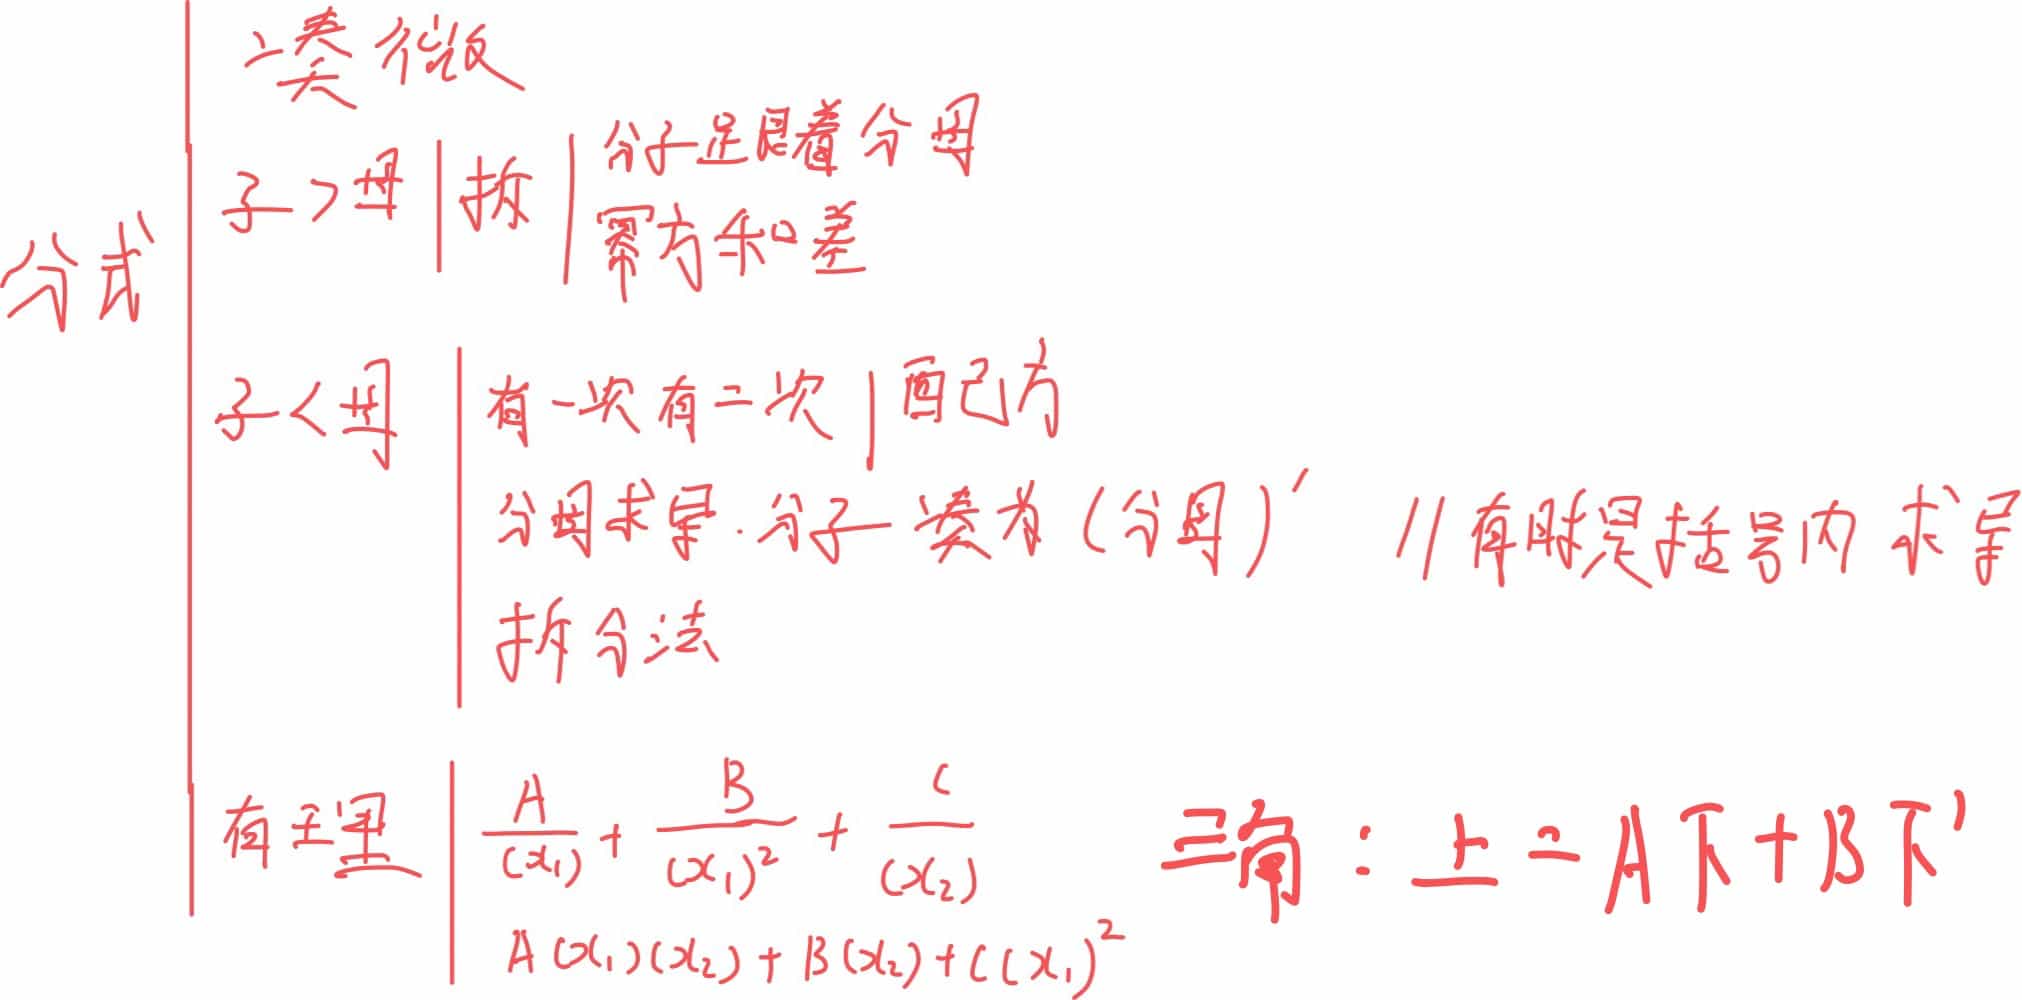 分式
二类微
子>母 拆 分子是跟着分母
幂方和差
子<母 有一次有二次 配方
分母求导.分子凑为(分母)' //有时是括号内求导
拆分法
有理 A/(x₁) + B/(x₁)² + C/(x₂) 三角:上=A下+B下'
A(x₁)(x₂)+B(x₂)+C(x₁)²